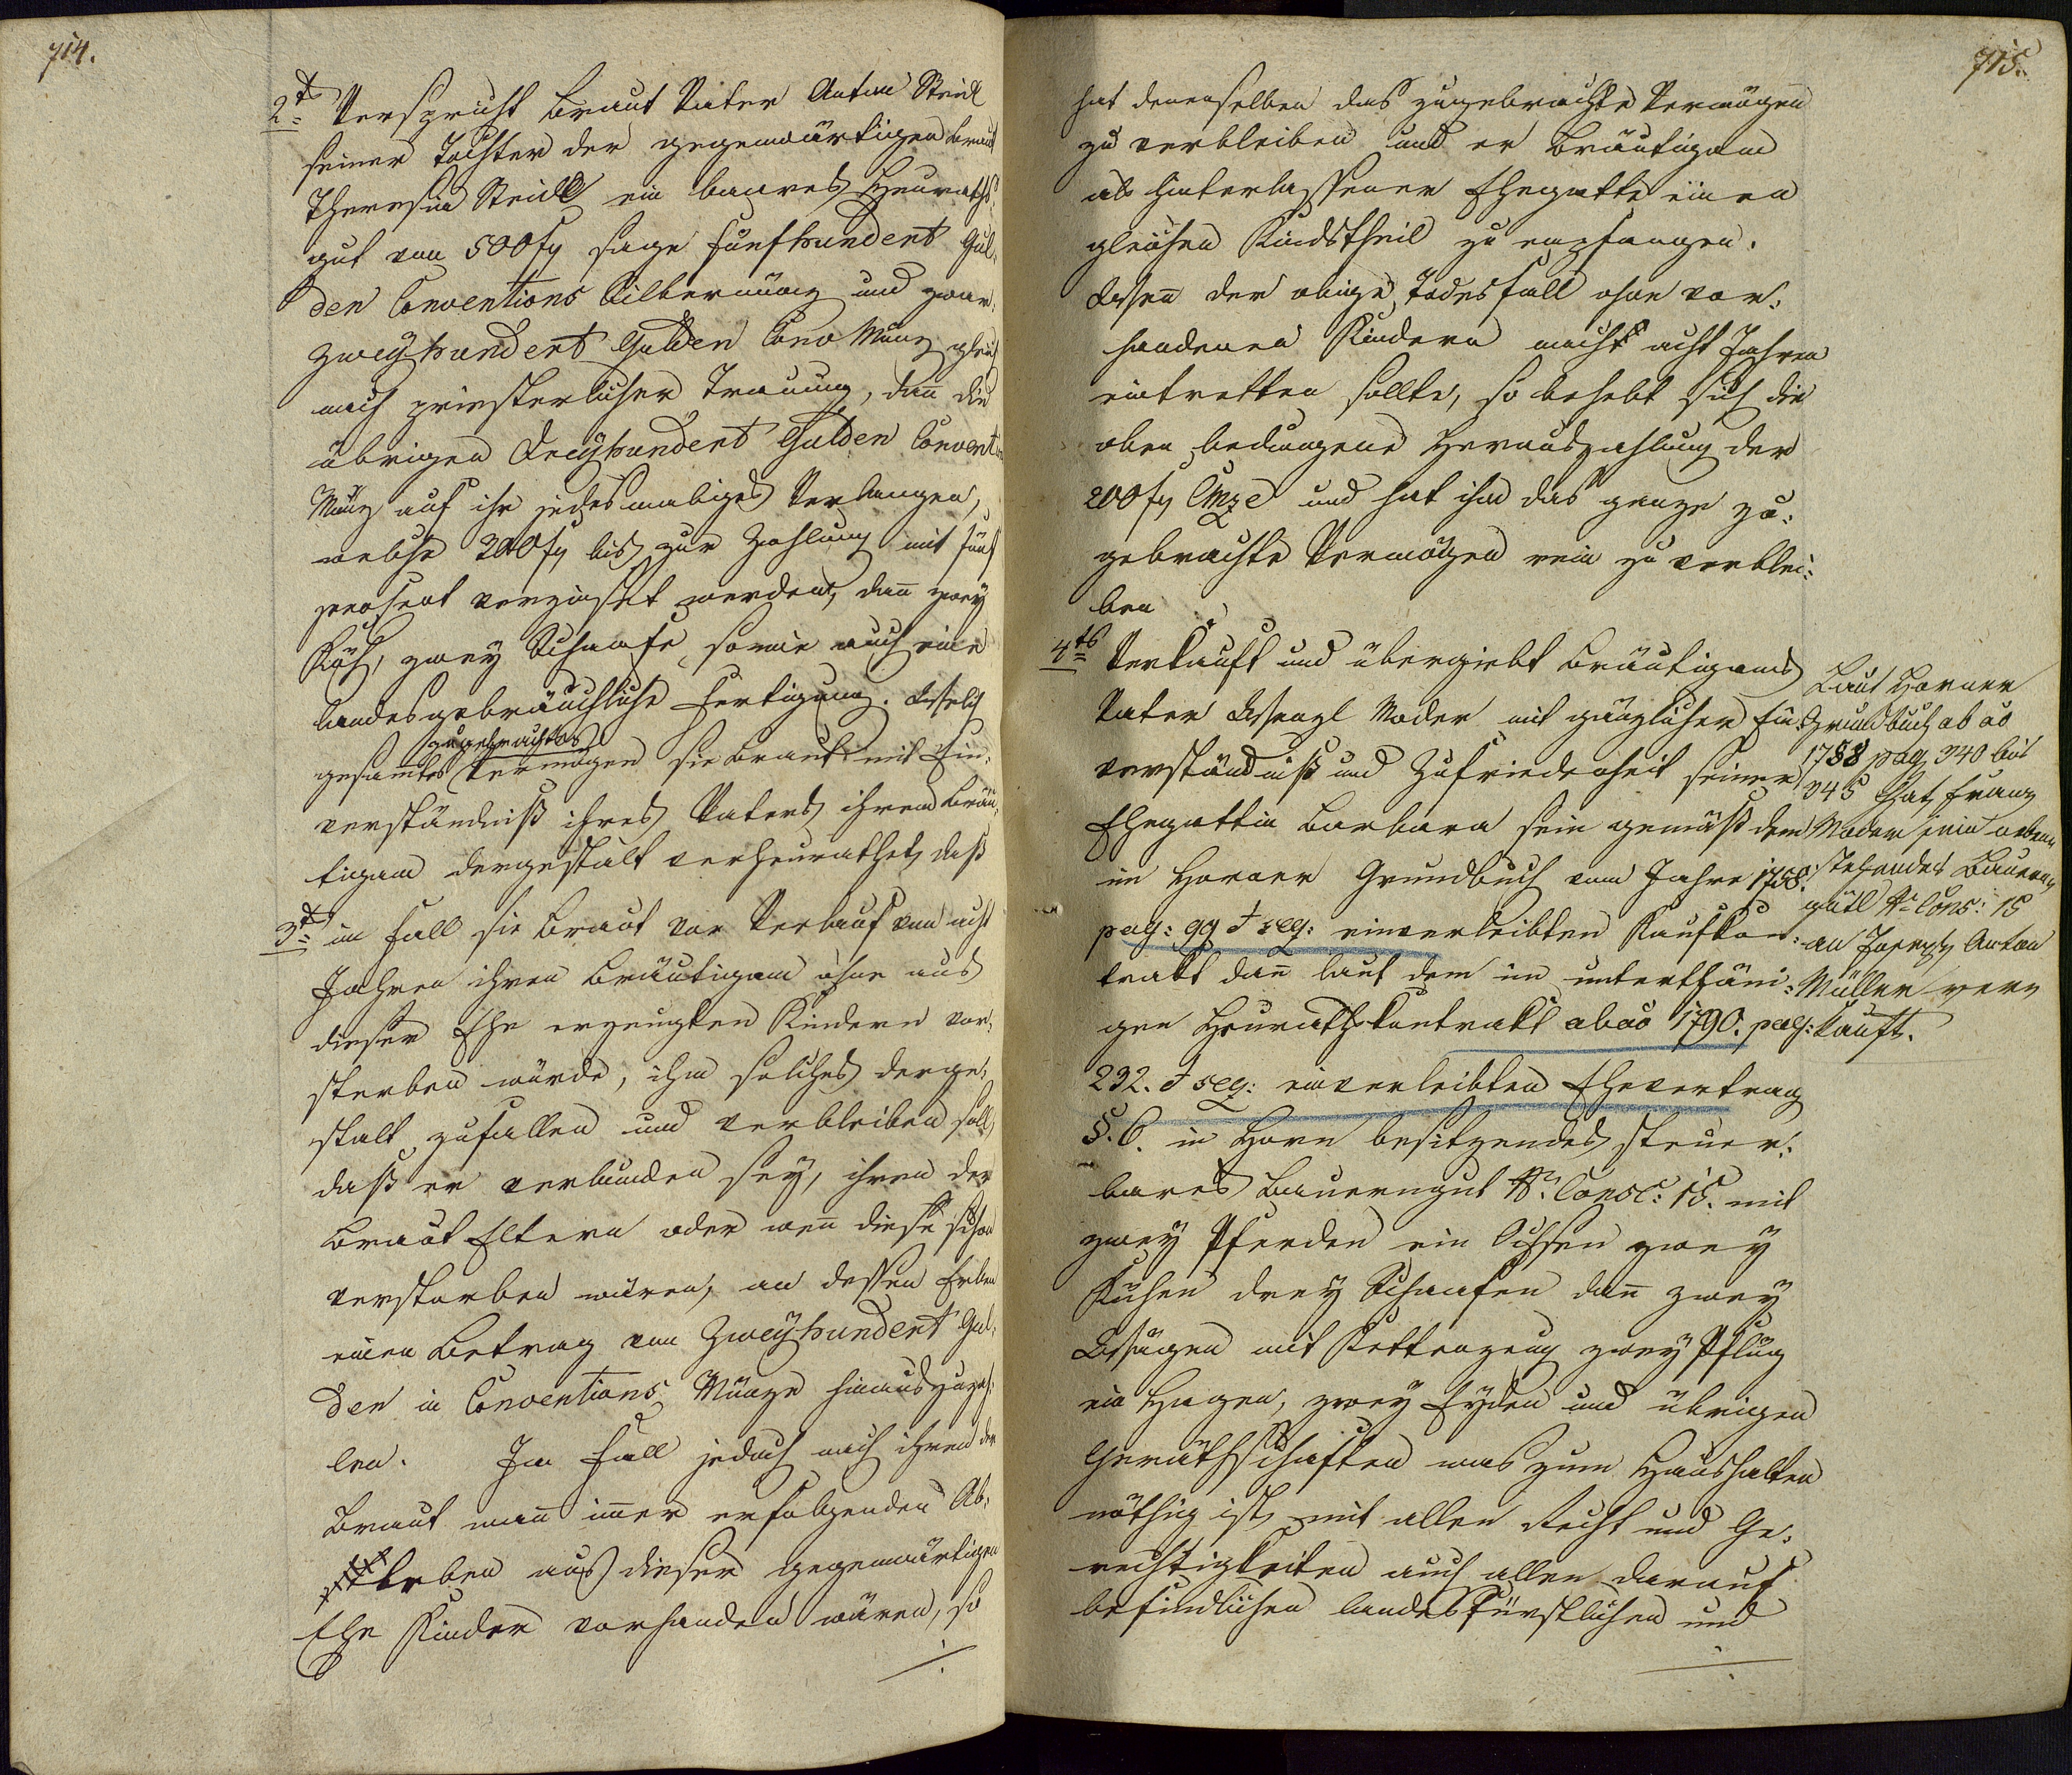 714.
2tens Verspricht Braut Vater Anton Steidl
seiner Tochter der gegenwärtigen Braut
Theresia Steidl ein baares Heuraths-
gut von 500 fl sage fünfhundert Gul-
den Conventions Silbermünz und zwar
zweyhundert Gulden Conv Münz gleich
nach priesterlicher Trauung, dann die
übrigen Dreyhundert Gulden Convent
Münz auf ihr jedesmaliges Verlangen,
welche 300 fl bis zur Zahlung mit fünf
procent verzinset werden, dann zwey
Küh, zwey Schaafe, sowie auch eine
landesgebräuchliche Fertigung. Welch
zugebrachtes
gesamtes Vermögen sie Braut mit Ein-
verständniß ihres Vaters ihrem Bräu-
tigam dergestalt verheurathet, daß
3tens im Fall sie Braut vor Verlauf von acht
Jahren ihren Bräutigam ohne aus
dieser Ehe erzeugten Kindern vor-
sterben würde, ihm solches derge-
stalt zufallen und verbleiben soll,
daß er verbunden sey, ihren der
Braut Eltern oder wenn diese schon
verstorben wären, an dessen Erben
einen Betrag von Zweyhundert Gul-
den in Conventions Münze hinauszuzah-
len. Im Fall jedoch nach ihren der
Braut wann immer erfolgenden Ab-
leben aus dieser gegenwärtigen
Ehe Kinder vorhanden wären, so
./.
715.
hat denenselben das zugebrachte Vermögen
zu verbleiben und er Bräutigam
als hinterlassener Ehegatte einen
gleichen Kindstheil zu empfangen.
Wenn der obige Todesfall ohne vor-
handenen Kindern nach acht Jahren
eintretten sollte, so behebt sich die
oben bedungene Herauszahlung der
200 fl CMze und hat ihm das ganze zu-
gebrachte Vermögen rein zu verblei-
ben
4tens Verkauft und übergiebt Bräutigams
Vater Wenzl Moder mit gänzlicher Ein-
verständniß und Zufriedenheit seiner
Ehegattin Barbara sein gemäß dem
im Horner Grundbuch vom Jahre 1788
pag: 99 & seq: einverleibten Kaufkon-
trakt dann laut dem im unterthäni-
gen Heurathskontrakt ab ao 1790. pag:
292. & seq: einverleibten Ehevertrag
§. 6. in Horn besitzendes steuer-
bares Bauerngut Nr. Consc: 15. mit
zwey Pferden ein Ochsen zwey
Kühen drey Schaafen dann zwey
Wägen mit Kettenzeug zwey Pflüg
ein Hagen, zwey Eyden und übrigen
Geräthschaften was zum Haushalten
nöthig ist, mit allen Recht und Ge-
rechtigkeiten auch allen darauf
befindlichen landesfürstlichen und
./.
Laut Horner
Grundbuch ab ao
1788 pag 340 bis
345 hat Franz
Moder sein neben
stehendes Bauern
gütl Nr Cons: 15
an Joseph Anton
Müller ver-
kauft.